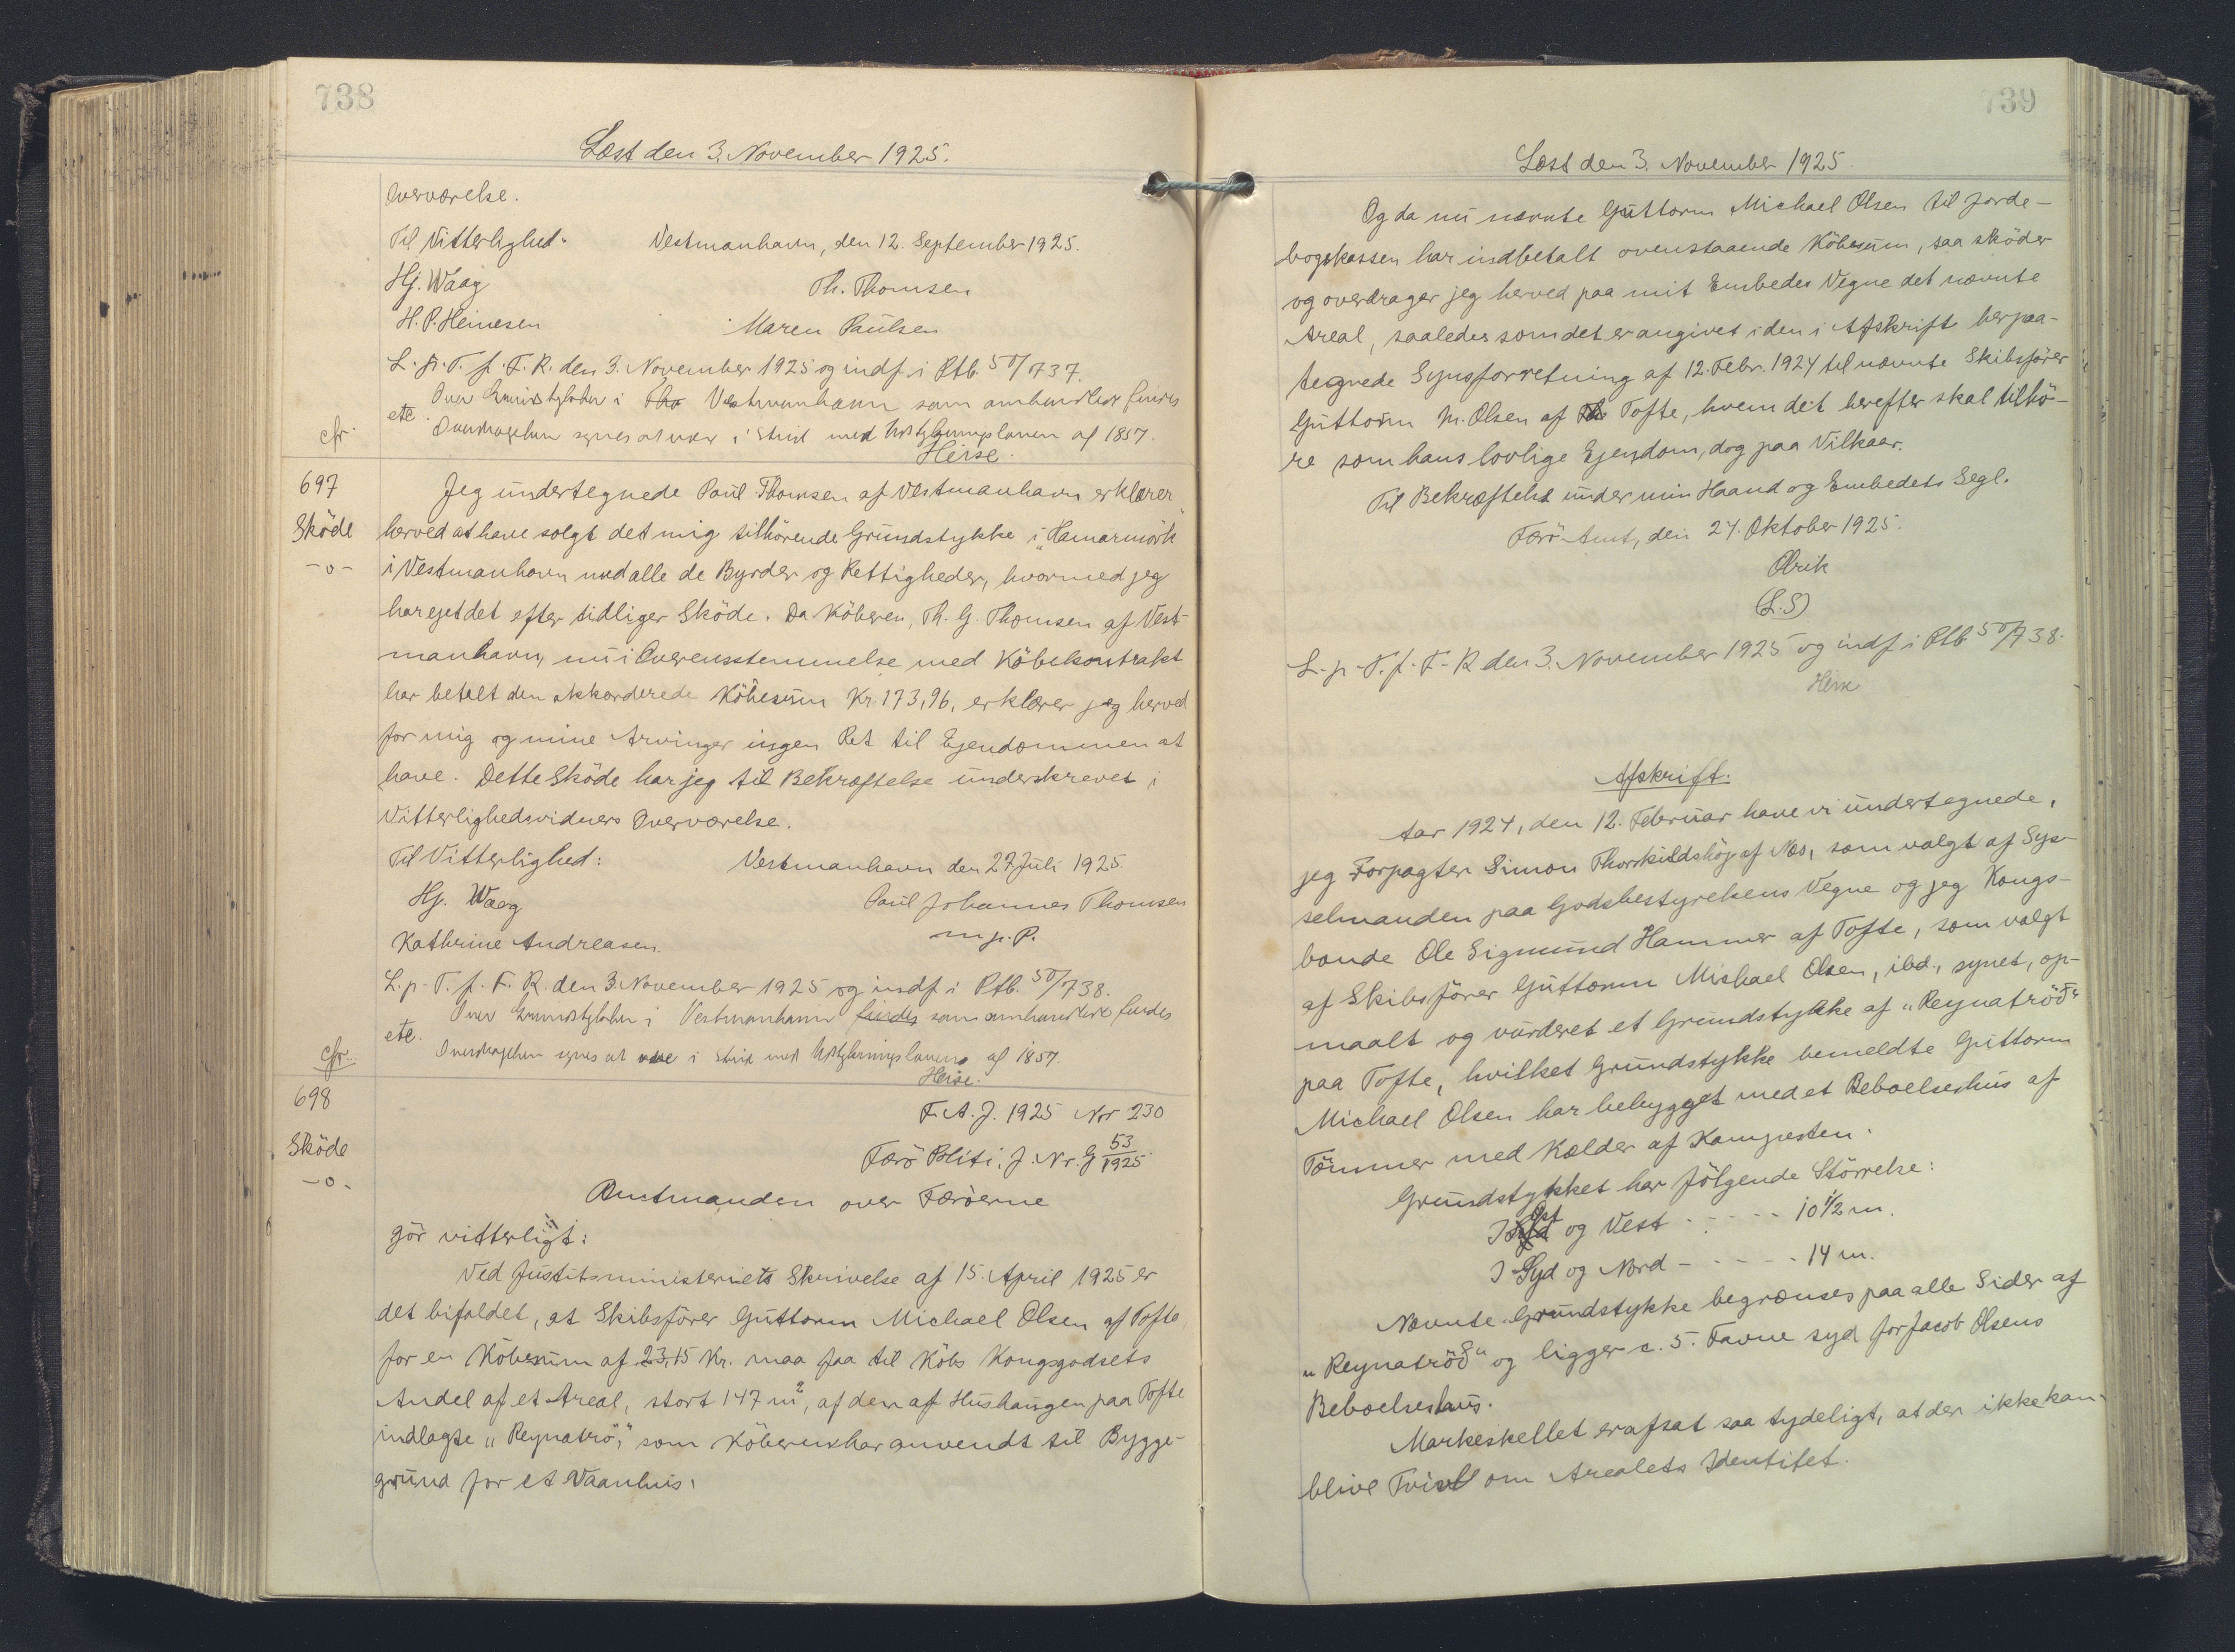 738
Læst den 3. November 1925.
Overværelse.
Til Vitterlighed: Vestmanhavn, den 12. September 1925.
Hj. Waag Th. Thomsen
H. P. Heinesen Maren Paulsen
L. p. T. f. F. R. den 3. November 1925 og indf. i Ptb. 50/737.
Over i Vestmanhavn som omhandlede findes
etc. Overdragelsen synes at være i Strid med Udstykningsplanen af 1857.
cfr. Heise.
697 Jeg undertegnede Poul Thomsen af Vestmanhavn erklærer
Sköde herved at have solgt det mig tilhörende Grundstykke i „Hamarmörk“
-o- i Vestmanhavn med alle de Byrder og Rettigheder, hvormed jeg
har ejet det efter tidliger Sköde. Da Köberen, Th. G. Thomsen af Vest-
manhavn, nu i Overensstemmelse med Köbekontrakt
har betalt den akkorderede Köbesum Kr. 173,96, erklærer jeg herved
for mig og mine Arvinger ingen Ret til Ejendommen at
have. Dette Sköde har jeg til Bekræftelse underskrevet i
Vitterlighedsvidners Overværelse.
Til Vitterlighed: Vestmanhavn den 27 Juli 1925
Hj. Waag Poul Johannes Thomsen
Kathrine Andreasen. m. p. P.
L. p. T. f. F. R. den 3. November 1925 og indf. i Ptb. 50/738.
Over i Vestmanhavn findes som omhandlede findes
etc. Overdragelsen synes at være i Strid med Udstykningsplanen af 1857.
cfr. Heise.
698 F. A. J. 1925 Nr 230
Sköde Færö Politi. J. Nr. G 53/1925
-o-
Amtmanden over Færöerne
gör vitterligt:
Ved Justitsministeriets Skrivelse af 15. April 1925 er
det bifaldet, at Skibsförer Guttorm Michael Olsen af Tofte
for en Köbesum af 23,15 Kr. maa faa til Köbs Kongsgodsets
Andel af et Areal, stort 147 m², af den af Hushaugen paa Tofte
indlagte „Reynatrö“, som Köberen har anvendt til Bygge-
grund for et Vaanhus.
739
Læst den 3. November 1925.
Og da nu nævnte Guttorm Michael Olsen til Jorde-
bogskassen har indbetalt ovenstaaende Köbesum, saa sköder
og overdrager jeg herved paa mit Embedes Vegne det nævnte
Areal, saaledes som det er angivet i den i Afskrift herpaa-
tegnede Synsforretning af 12. Febr. 1924 til nævnte Skibsförer
Guttorm M. Olsen af Tofte, hvem det herefter skal tilhö-
re som hans lovlige Ejendom, dog paa Vilkaar.
Til Bekræftelse under min Haand og Embedets Segl.
Færö Amt, den 24. Oktober 1925.
Olrik
(L.S)
L. p. T. f. F. R den 3. November 1925 og indf. i Ptb. 50/738.
Heise
Afskrift.
Aar 1924, den 12. Februar have vi undertegnede,
jeg Forpagter Simon Thorkildshöj af Næs, som valgt af Sys-
selmanden paa Godsbestyrelsens Vegne og jeg Kongs-
bonde Ole Sigmund Hammer af Tofte, som valgt
af Skibsförer Guttorm Michael Olsen, ibd., synet, op-
maalt og vurderet et Grundstykke af „Reynatröð“
paa Tofte, hvilket Grundstykke bemeldte Guttorm
Michael Olsen har bebygget med et Beboelseshus af
Tömmer med Kælder af Kampesten.
Grundstykket har fölgende Störrelse:
I Öst og Vest - - - - - 10 1/2 m.
I Syd og Nord - - - - - 14 m.
Nævnte Grundstykke begrænses paa alle Sider af
„Reynatröð“ og ligger c. 5. Favne syd for Jacob Olsens
Beboelseshus.
Markeskellet er afsat saa tydeligt, at der ikke kan
blive Tvivl om Arealets Identitet.